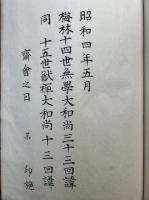 昭和四年五月
梅林十四世無學大和尚三十三回諱
同 十五世獣禪大和尚十三回諱
齋會之日 印施